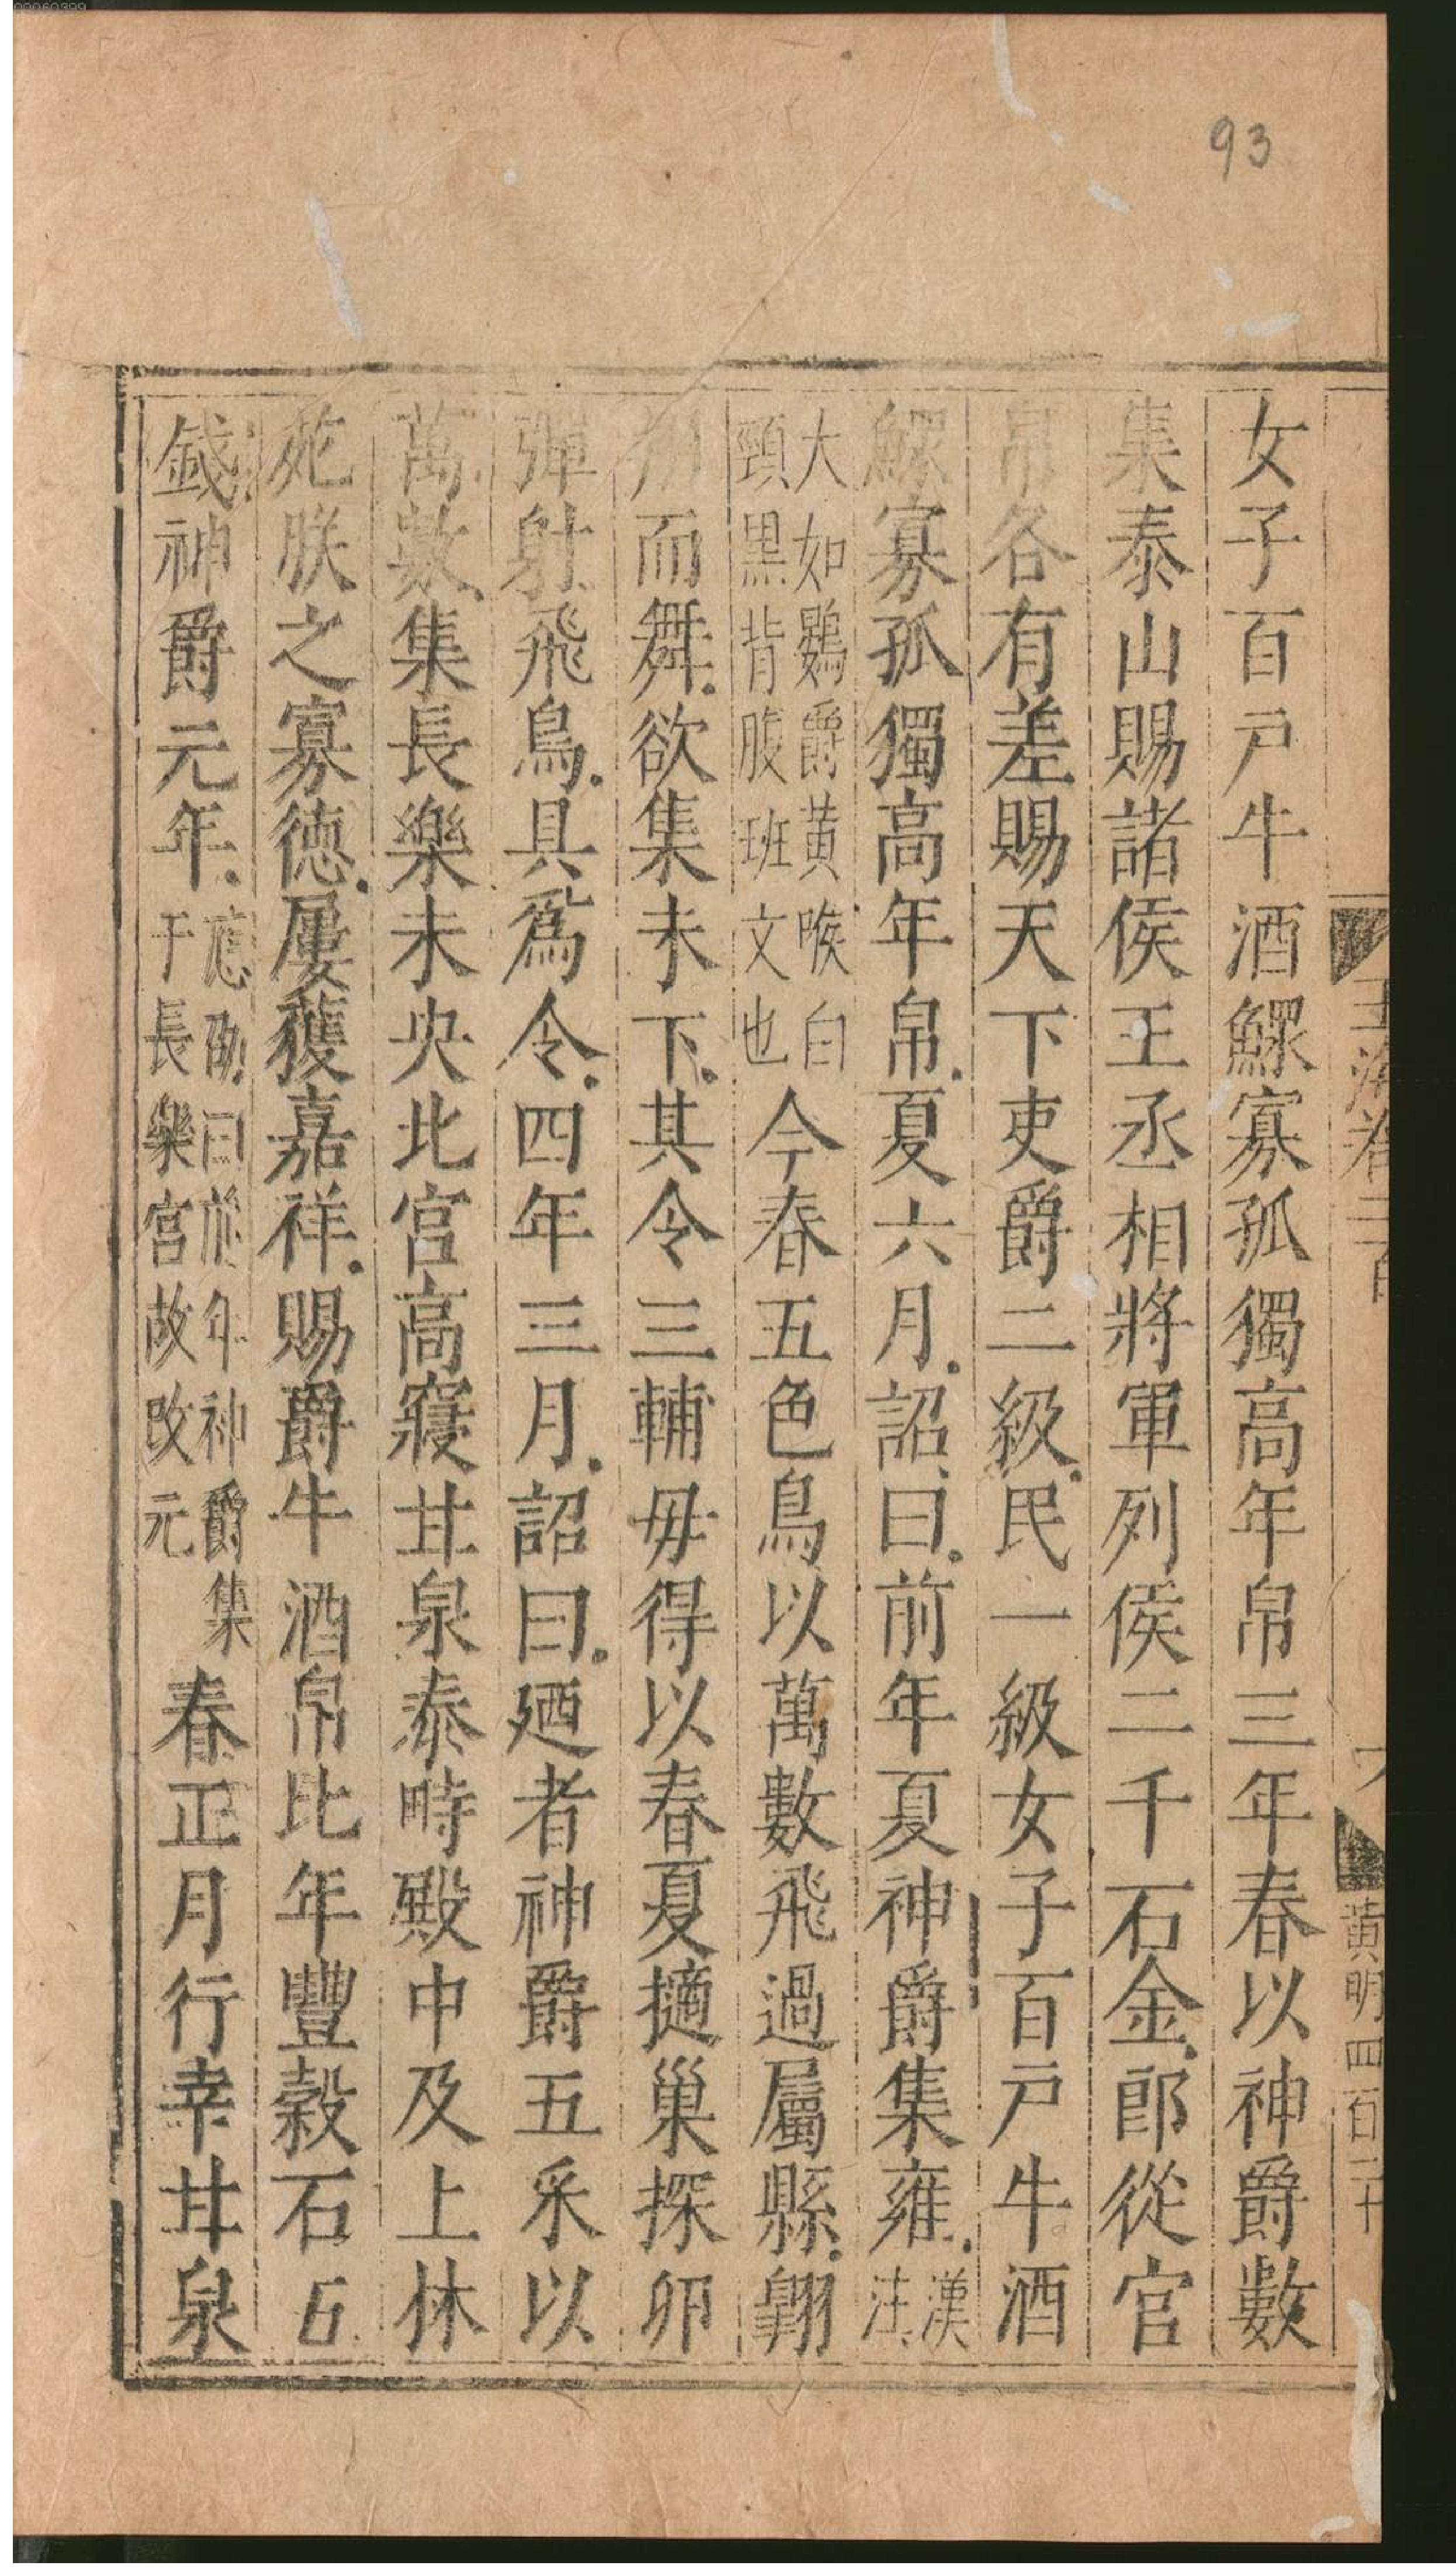 00060399
93
玉海卷二百
黄明四百二十
女子百戸牛酒鰥寡孤獨高年帛三年春以神爵數
集泰山賜諸侯王丞相將軍列侯二千石金郎從官
帛各有差賜天下吏爵二級民一級女子百戸牛酒
鰥寡孤獨高年帛夏六月詔曰前年夏神爵集雍漢注
大如鷃爵黄喉白頸黒背腹班文也今春五色鳥以萬數飛過屬縣翱
翔而舞欲集未下其令三輔毋得以春夏擿巢探卵
彈射飛鳥具爲令四年三月詔曰廼者神爵五采以
萬數集長樂未央北宫高寢甘泉泰畤殿中及上林
苑朕之寡徳屢獲嘉祥賜爵牛酒帛比年豐穀石五
錢神爵元年應劭曰前年神爵集于長樂宫故改元春正月行幸甘泉